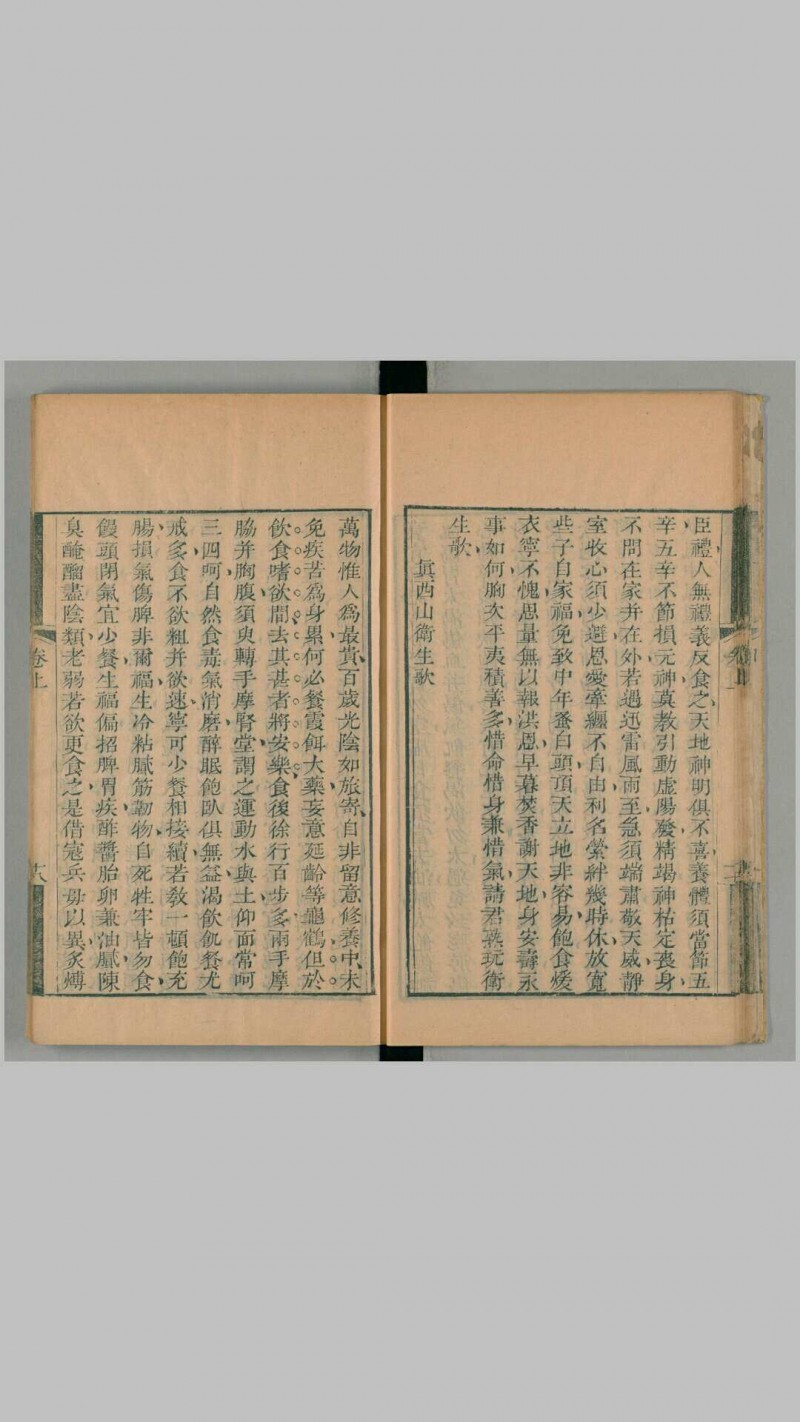 臣禮人無禮義反食之天地神明俱不喜養體須當節五
辛五辛不節損元神莫教引動虛陽發精竭神枯定喪身
不問在家并在外若遇迅雷風雨至急須端肅敬天威靜
室收心須少避恩愛牽纏不自由利名縈絆幾時休放寬
些子自家福免致中年蚤白頭頂天立地非容易飽食煖
衣寧不愧思量無以報洪恩早暮焚香謝天地身安壽永
事如何胸次平夷積善多惜命惜身兼惜氣請君熟玩衛
生歌
真西山衛生歌
萬物惟人為最貴百歲光陰如旅寄自非留意修養中未
免疾苦為身累何必餐霞餌大藥妄意延齡等龜鶴但於
飲食嗜欲間去其甚者將安樂食後徐行百步多兩手摩
脇并胸腹須臾轉手摩腎堂謂之運動水與土仰面常呵
三四呵自然食毒氣消磨醉眠飽臥俱無益渴飲飢餐尤
戒多食不欲粗并欲速寧可少餐相接續若教一頓飽充
腸損氣傷脾非爾福生冷粘膩筋韌物自死牲牢皆勿食
饅頭閉氣宜少餐生福偏招脾胃疾酢醬胎卵兼油膩陳
臭醃醢盡陰類老弱若欲更食之是借寇兵毋以異炙煿
卷上
十八